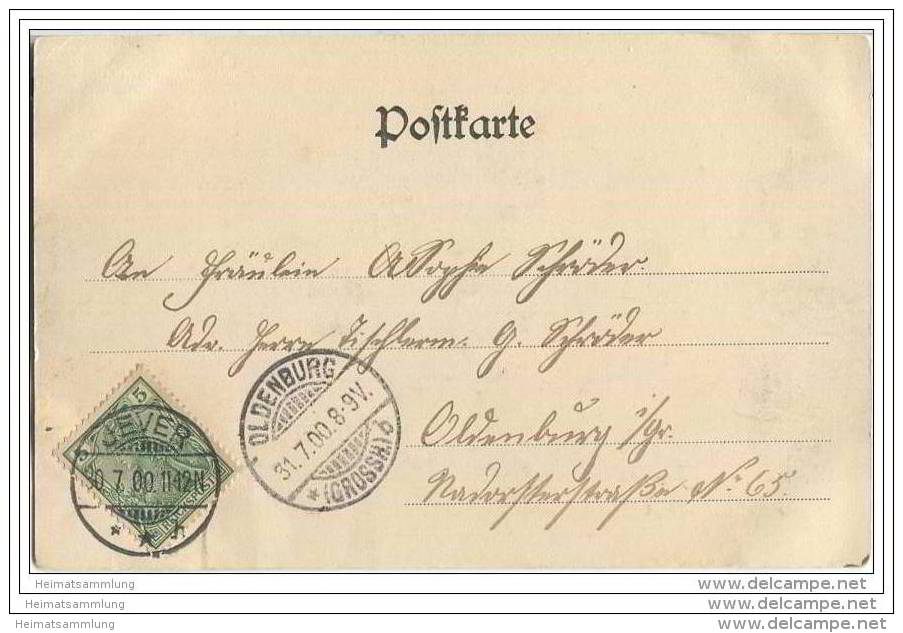 Postkarte
An Fräulein Sophie Schröder.
Adr. Herrn Tischlerm. G. Schröder
Oldenburg i/Gr.
Nadorsterstraße No 65.
5
JEVER
30 7 00 11-12N.
OLDENBURG
31.7.00.8-9V.
* (GROSSH.) b
www.delcampe.net
www.delcampe.net
www.delcampe.net
Heimatsammlung
Heimatsammlung
Heimatsammlung